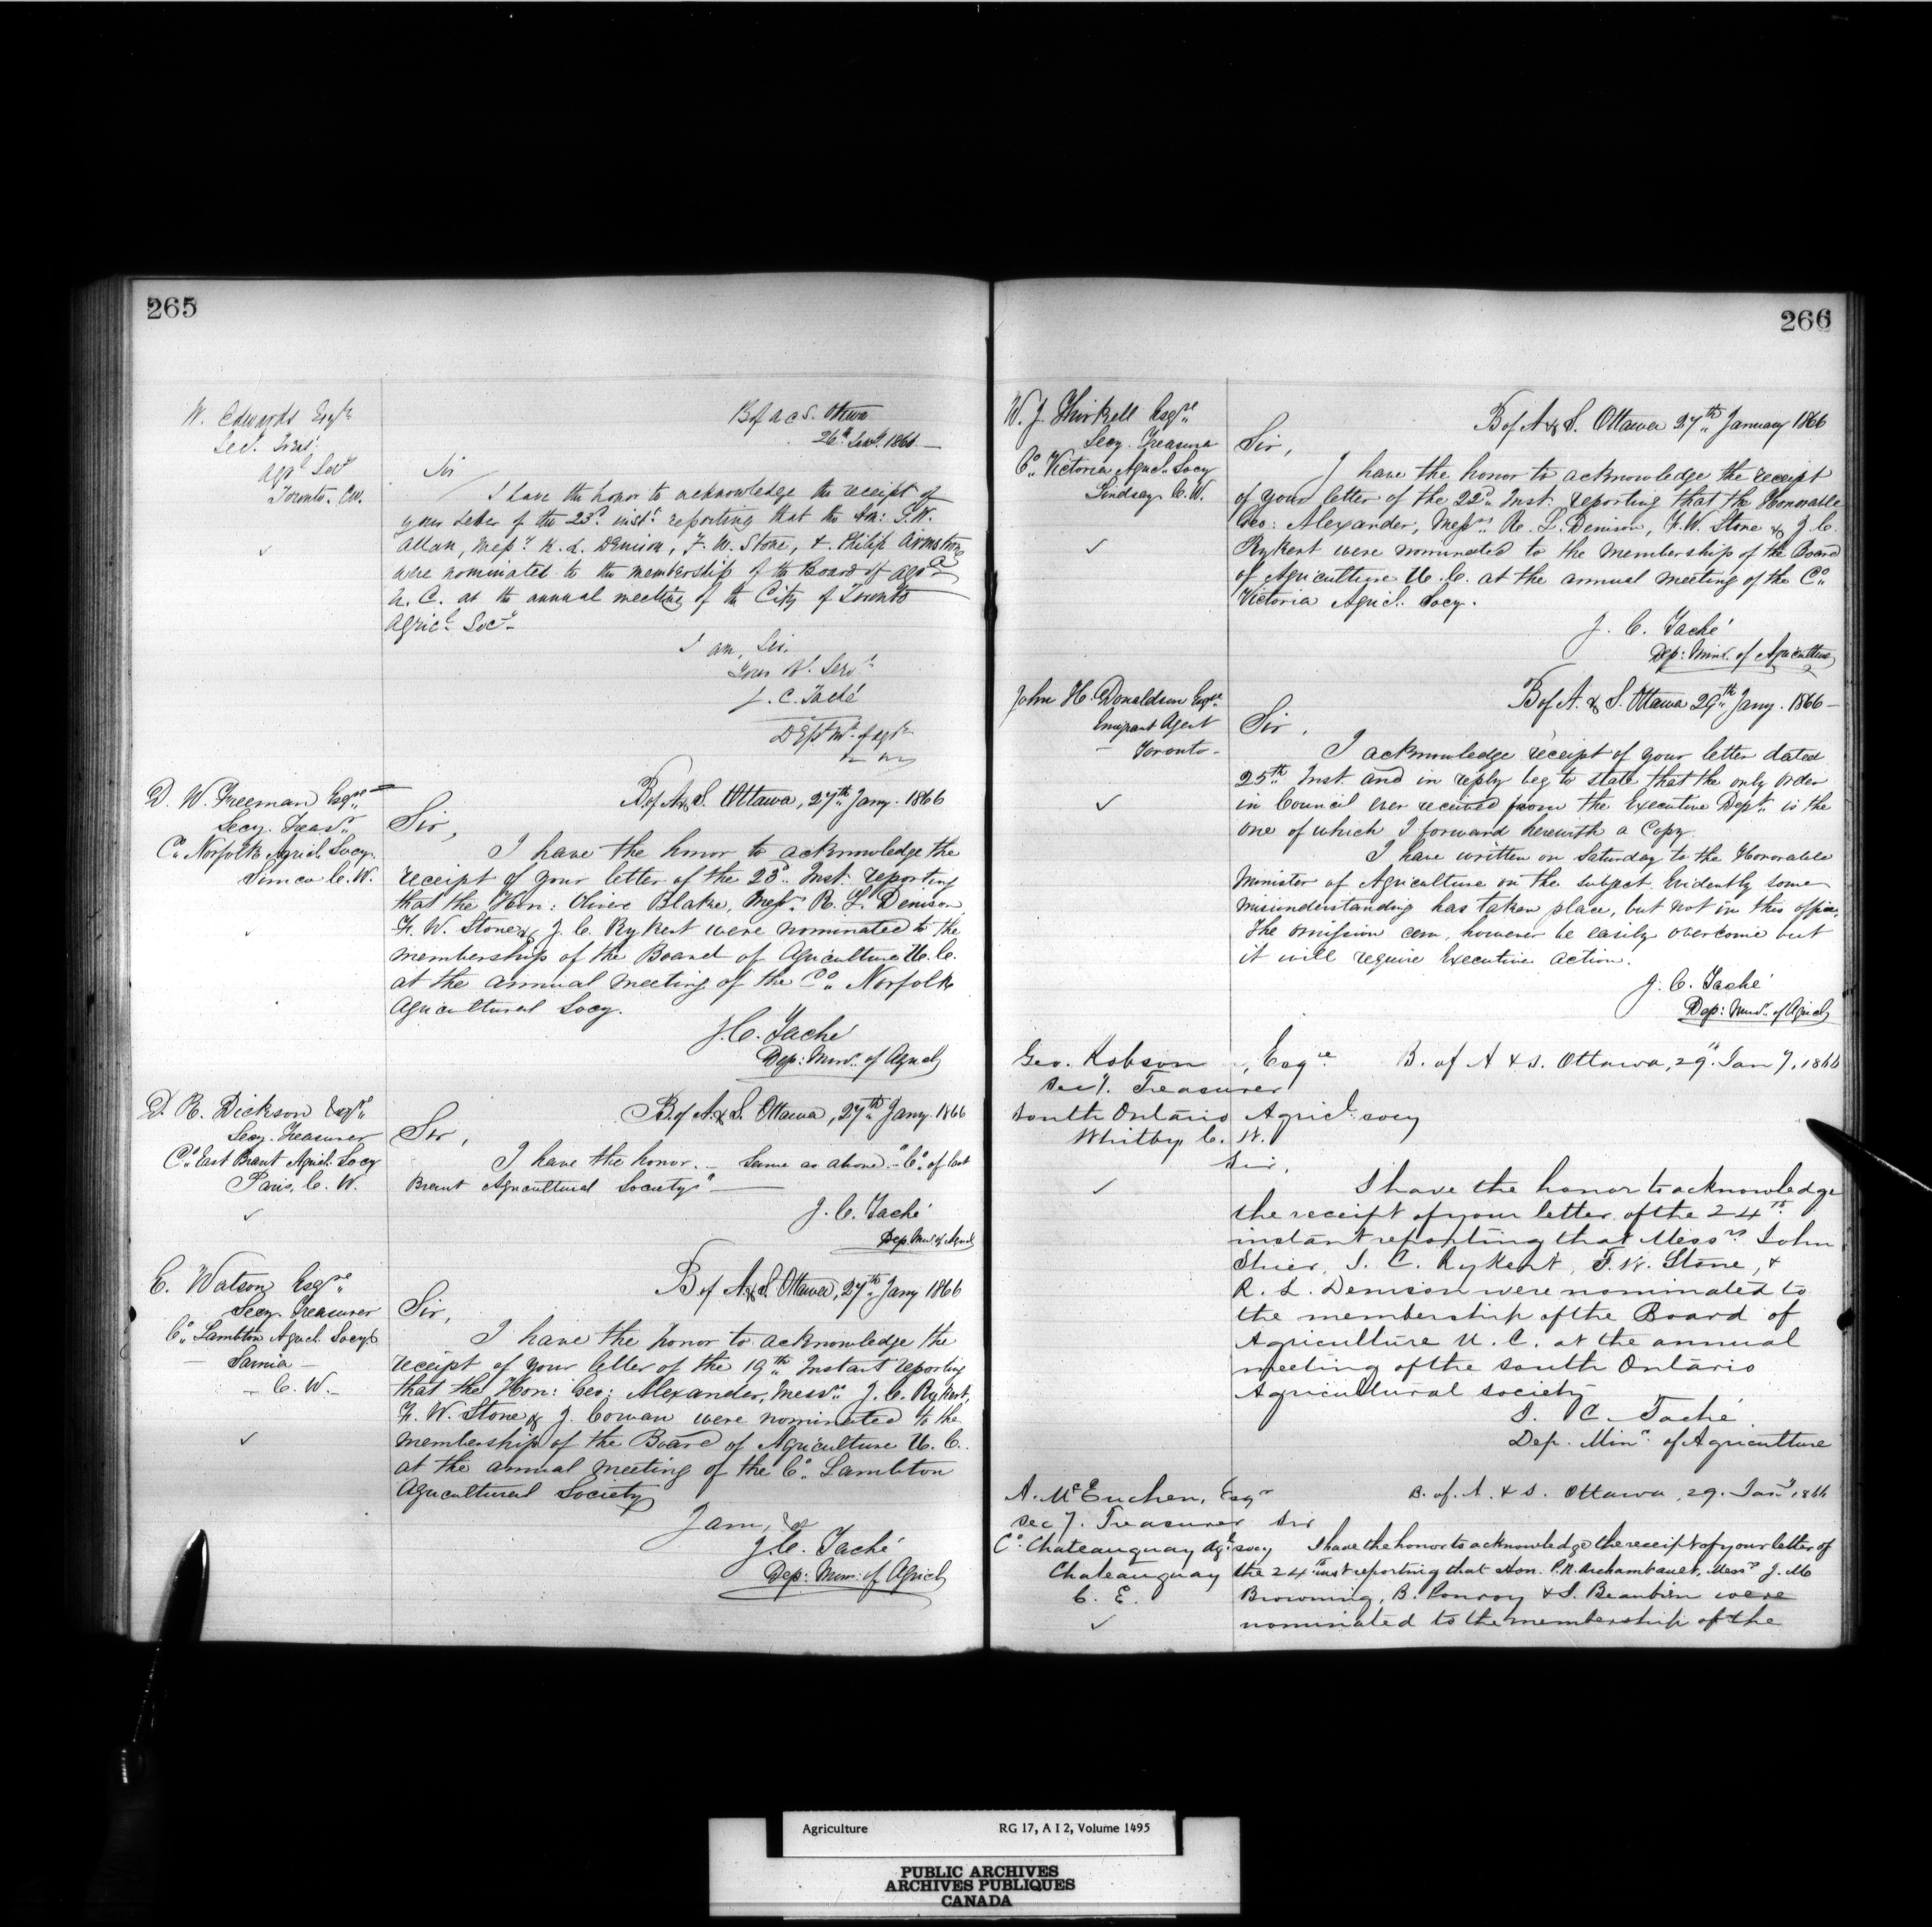 265
W. Edwards Esqre
Secy. Treasr
Agrl Socy
Toronto. C.W.
B of A & S. Ottawa
26th Jany. 1866 —
Sir
I have the honor to acknowledge the receipt of
your letter of the 23d. inst. reporting that the Hon: G. W.
Allan, Messrs R. L. Denison, F. W. Stone, & Philip Armstrong
were nominated to the membership of the Board of Agr
U. C. at the annual meeting of the City of Toronto
Agricl. Socy—
I am, Sir.
Your Ob. Servt
J. C. Taché
Dep. Mr. of Agre
D. W. Freeman Esqre
Secy. Treasr
Co. Norfolk Agricl. Socy.
Simcoe C. W.
B of A & S. Ottawa, 27th Jany. 1866
Sir,
I have the honor to acknowledge the
receipt of your letter of the 23d. Inst. reporting
that the Hon: Oliver Blake, Messrs. R. L. Denison
F. W. Stone & J. C. Rykert were nominated to the
membership of the Board of Agriculture U. C.
at the annual meeting of the Co. Norfolk
Agricultural Socy.
J. C. Taché
Dep: Minr. of Agricl
D. R. Dickson Esqre
Secy. Treasurer
Co. East Brant Agricl. Socy
Paris, C. W.
B of A. & S. Ottawa, 27th Jany. 1866
Sir,
I have the honor. — Same as above — "Co. of East
Brant Agricultural Society" —
J. C. Taché
Dep. Minr of Agricl
E. Watson Esqre
Secy. Treasurer
Co. Lambton Agricl. Socy.
— Sarnia —
— C. W. —
B of A. & S. Ottawa, 27th Jany 1866
Sir,
I have the honor to acknowledge the
receipt of your letter of the 19th Instant reporting
that the Hon: Geo: Alexander, Messrs. J. C. Rykert,
F. W. Stone & J. Cowan were nominated to the
membership of the Board of Agriculture U. C.
at the annual meeting of the Co. Lambton
Agricultural Society
I am, &c
J. C. Taché
Dep: Minr: of Agricl
266
W. J. Thirkell Esqre
Secy. Treasurer
Co. Victoria Agricl. Socy
Lindsay C. W.
B of A & S. Ottawa 27th January 1866
Sir,
I have the honor to acknowledge the receipt
of your letter of the 22d. Inst. reporting that the Honorable
Geo: Alexander, Messrs R. L. Denison, F. W. Stone & J. C.
Rykert were nominated to the membership of the Board
of Agriculture U. C. at the annual meeting of the Co.
Victoria Agricl. Socy.
J. C. Taché
Dep: Minr. of Agriculture
John H. Donaldson Esqre.
Emigrant Agent
— Toronto —
B of A. & S. Ottawa 29th Jany. 1866 —
Sir,
I acknowledge receipt of your letter dated
25th Inst and in reply beg to state that the only Order
in Council ever received from the Executive Dept. is the
one of which I forward herewith a Copy.
I have written on Saturday to the Honorable
Minister of Agriculture on the subject. Evidently some
misunderstanding has taken place, but not in this office.
The omission can, however be easily overcome but
it will require Executive action.
J. C. Taché
Dep: Minr. of Agricl
Geo. Robson, Esqre
Secy. Treasurer
South Ontario Agricl. Socy
Whitby C. W.
B. of A & S. Ottawa, 29th Jany, 1866
Sir,
I have the honor to acknowledge
the receipt of your letter of the 24th
instant reporting that Messrs John
Shier, J. C. Rykert, F. W. Stone, &
R. L. Denison were nominated to
the membership of the Board of
Agriculture U. C. at the annual
meeting of the South Ontario
Agricultural Society
J. C. Taché.
Dep. Minr. of Agriculture
A. McEuchen, Esqr
Secy. Treasurer
Co. Chateauguay Agl. Socy
Chateauguay
C. E.
B. of. A. & S. Ottawa, 29. Jany 1866
Sir
I have the honor to acknowledge the receipt of your letter of
the 24th inst reporting that Hon. P. R. Archambault, Messrs J. M
Browning, B. Pomroy & S. Beaubien were
nominated to the membership of the
Agriculture RG 17, A I 2, Volume 1495
PUBLIC ARCHIVES
ARCHIVES PUBLIQUES
CANADA